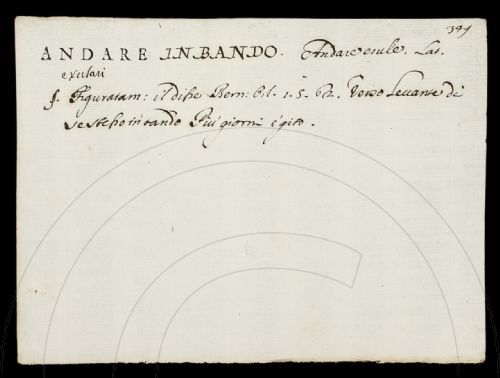 344
ANDARE IN BANDO. Andare esule. Lat.
exulari
§. Figuratam: il disse Bern: Orl. 1. 5. 62. Verso Levante di
giorni e gito.